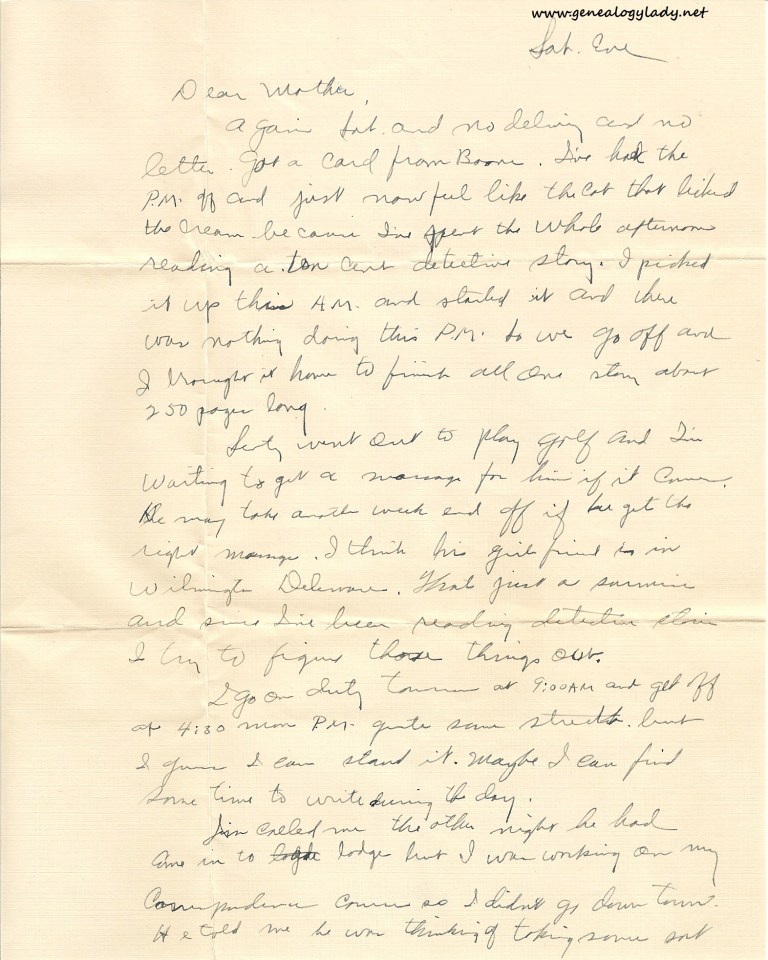 www.genealogylady.net
Sat. Eve
Dear Mother,
Again Sat. and no delivery and no
letter. Got a card from Boone. I've had the
P.M. off and just now feel like the cat that licked
the cream because I've spent the whole afternoon
reading a ten cent detective story. I picked
it up this A.M. and started it and there
was nothing doing this P.M. so we go off and
I brought it home to finish all one story about
250 pages long.
went out to play golf and I'm
waiting to get a message for him if it comes.
He may take another week end off if he gets the
right message. I think his girl friend is in
Wilmington Delaware. That just a surmise
and since I've been reading detective stories
I try to figure those things out.
I go on duty tomorrow at 9:00 AM and get off
at 4:30 Mon P.M. quite some stretch but
I guess I can stand it. Maybe I can find
some time to write during the day.
Jim called me the other night he had
come in to lodge but I was working on my
Correspondence course so I didn't go down town.
He told me he was thinking of taking some sort